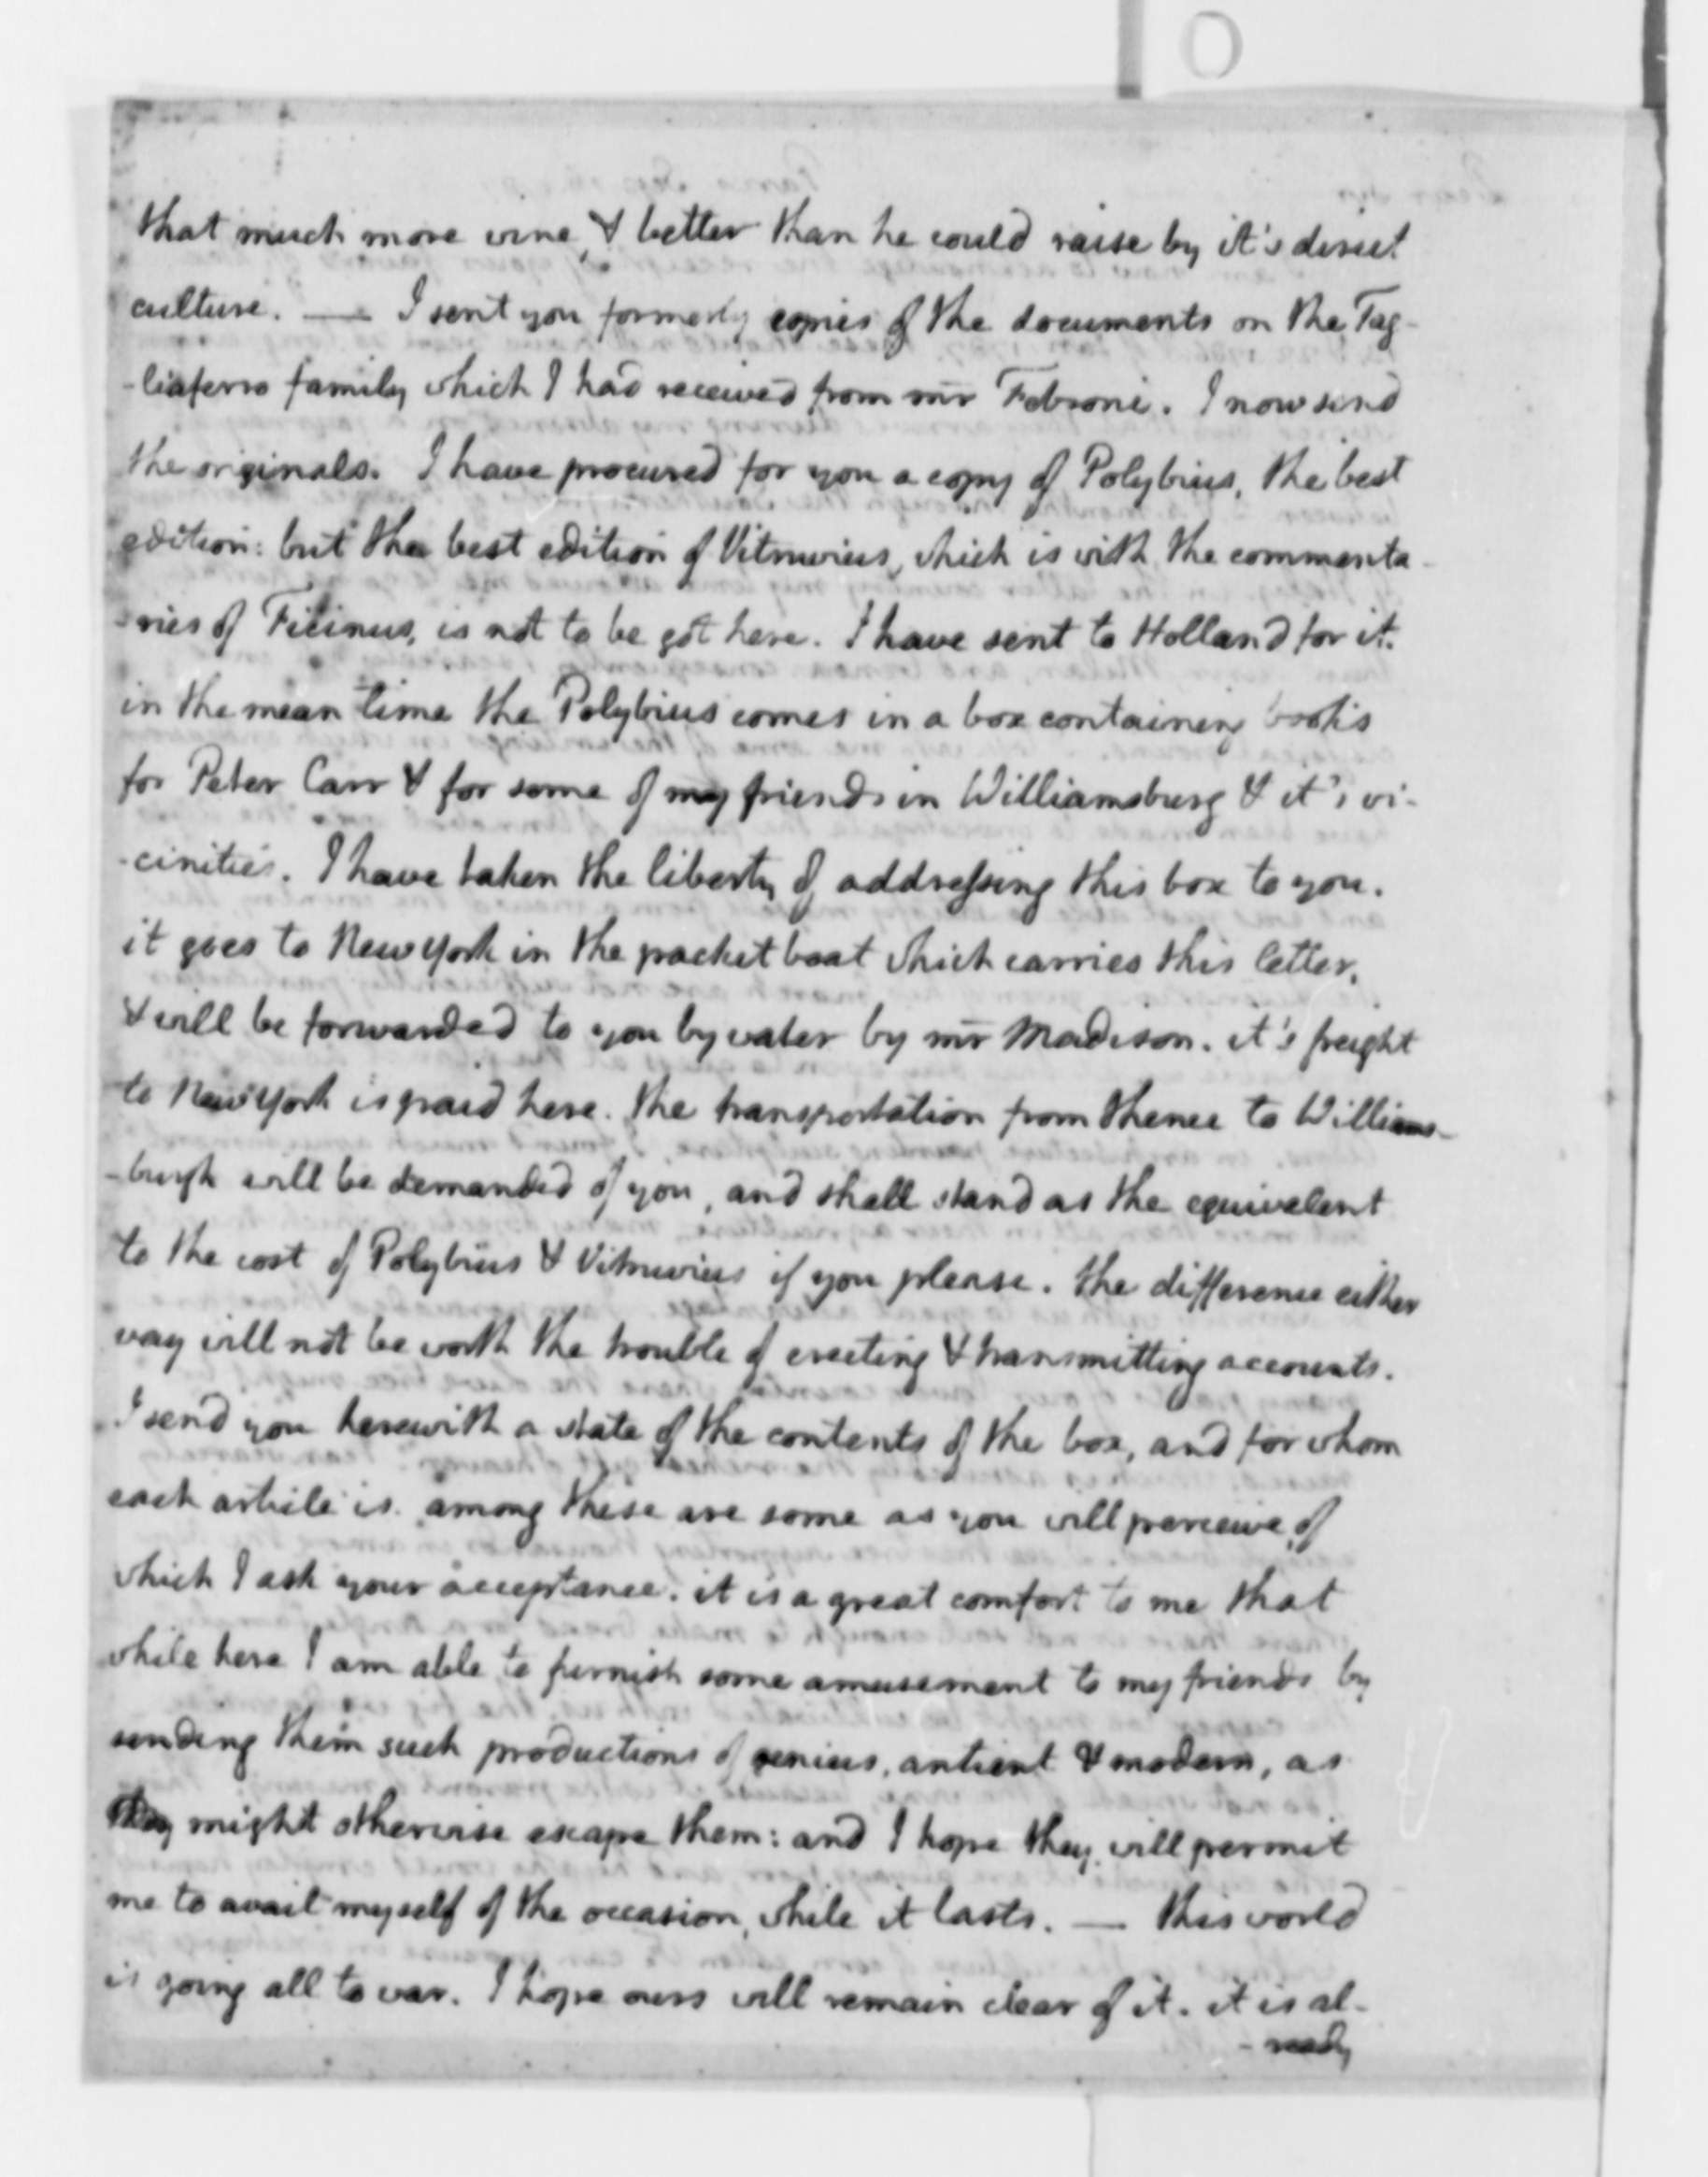 that much more wine, & better than he could raise by it's direct
culture. — I sent you formerly copies of the documents on the Tag-
-liaferro family which I had received from mr Febroni. I now send
the originals. I have procured for you a copy of Polybius, the best
edition: but the best edition of Vitruvius, which is with the commenta-
-ries of Ficinus, is not to be got here. I have sent to Holland for it.
in the mean time the Polybius comes in a box containing books
for Peter Carr & for some of my friends in Williamsburg & it's vi-
-cinities. I have taken the liberty of addressing this box to you.
it goes to New York in the packet boat which carries this letter,
& will be forwarded to you by water by mr Madison. it's freight
to New York is paid here. the transportation from thence to Williams-
-burgh will be demanded of you, and shall stand as the equivalent
to the cost of Polybius & Vitruvius if you please. the difference either
way will not be worth the trouble of erecting & transmitting accounts.
I send you herewith a state of the contents of the box, and for whom
each article is. among these are some as you will perceive, of
which I ask your acceptance. it is a great comfort to me that
while here I am able to furnish some amusement to my friends by
sending them such productions of genius, antient & modern, as
they might otherwise escape them: and I hope they will permit
me to avail myself of the occasion, while it lasts. — this world
is going all to war. I hope ours will remain clear of it. it is al-
-ready